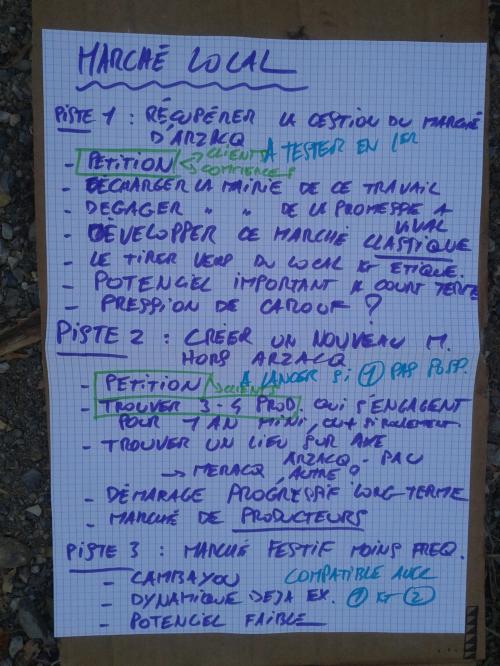 MARCHÉ LOCAL
PISTE 1 : RÉCUPÉRER LA GESTION DU MARCHÉ
D'ARZACQ
- PETITION CLIENTS A TESTER EN 1ER
COMMERCES
- DÉCHARGER LA MAIRIE DE CE TRAVAIL
- DÉGAGER " " DE LA PROMESSE A
VIVAL
- DÉVELOPPER CE MARCHÉ CLASTIQUE
- LE TIRER VERS DU LOCAL ET ETIQUE.
- POTENCIEL IMPORTANT A COURT TERME
- PRESSION DE CAROUF ?
PISTE 2 : CRÉER UN NOUVEAU M.
HORS ARZACQ
- PETITION CLIENTS A LANCER SI 1 PAS POSS.
- TROUVER 3-4 PROD. QUI S'ENGAGENT
POUR 1 AN MINI,
- TROUVER UN LIEU SUR AXE
ARZACQ - PAU
→ MERACQ, AUTRE ?
- DÉMARAGE PROGRESSIF LONG TERME
- MARCHÉ DE PRODUCTEURS
PISTE 3 : MARCHÉ FESTIF MOINS FREQ.
- CAMBAYOU COMPATIBLE AVEC
- DYNAMIQUE DEJA EX. 1 ET 2
- POTENCIEL FAIBLE